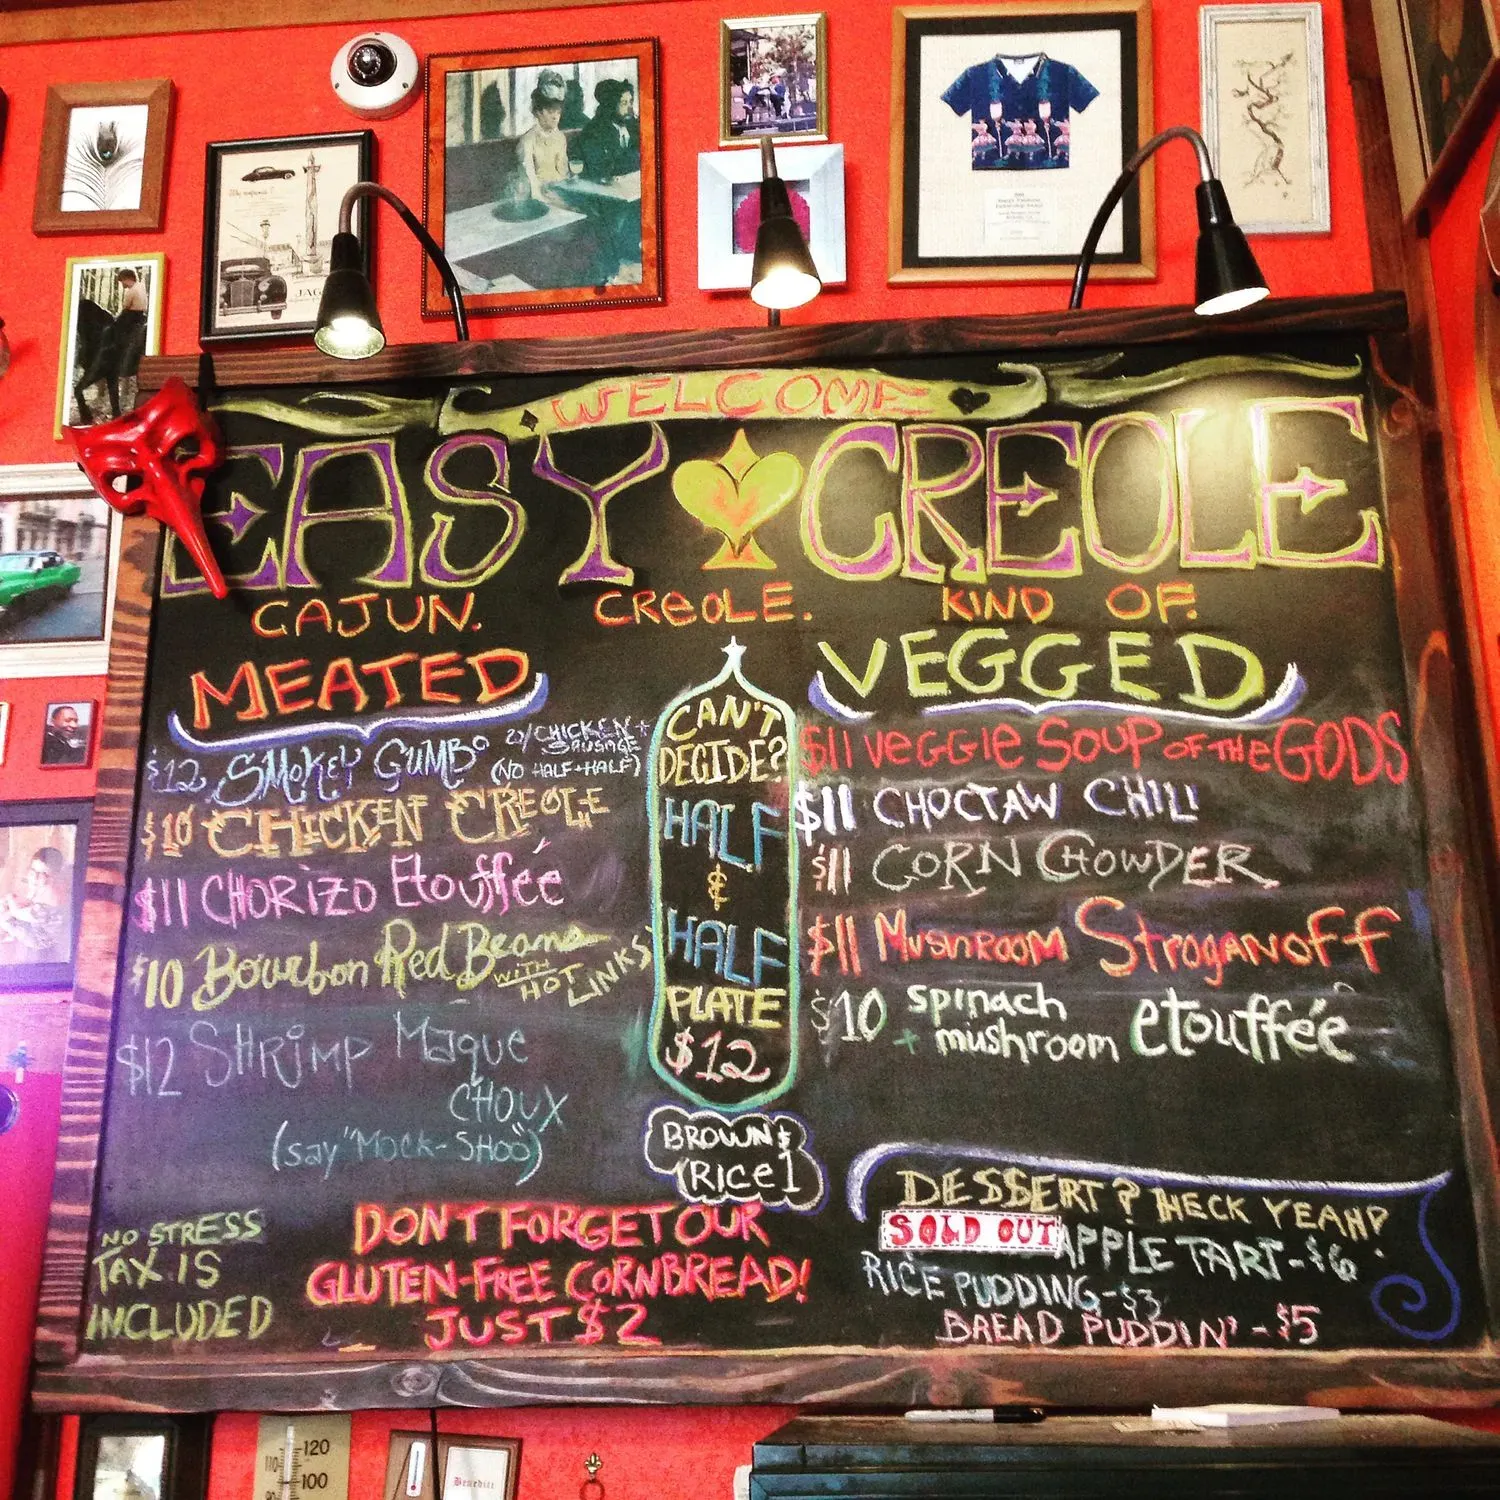 WELCOME
EASY CREOLE
CAJUN. CREOLE. KIND OF.
MEATED
$12 SMOKEY GUMBO w/CHICKEN + SAUSAGE
(NO HALF+HALF)
$10 CHICKEN CREOLE
$11 CHORIZO Etouffée
$10 Bourbon Red Beans WITH HOT LINKS
$12 SHRIMP Maque
CHOUX
(say "Mock-SHOO")
CAN'T
DECIDE?
HALF
&
HALF
PLATE
$12
BROWN $
RICE 1
VEGGED
$11 VEGGIE SOUP OF THE GODS
$11 CHOCTAW CHILI
$11 CORN CHOWDER
$11 MUSHROOM STROGANOFF
$10 spinach
+ mushroom etouffée
NO STRESS
TAX IS
INCLUDED
DON'T FORGET OUR
GLUTEN-FREE CORNBREAD!
JUST $2
DESSERT? HECK YEAH!
SOLD OUT APPLE TART-$6
RICE PUDDING-$3
BREAD PUDDIN'-$5
JAG
120
110
100
Benedict